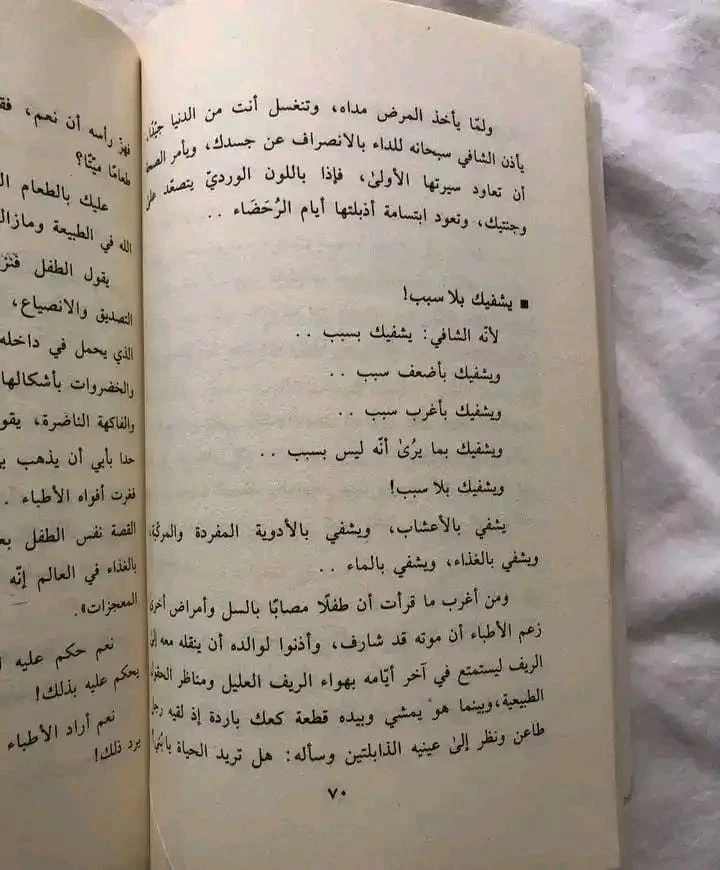 ولمّا يأخذ المرض مداه، وتنغسل أنت من الدنيا جيّدًا،
يأذن الشافي سبحانه للداء بالانصراف عن جسدك، ويأمر
أن تعاود سيرتها الأولىٰ، فإذا باللون الورديّ يتصعّد
وجنتيك، وتعود ابتسامة أذبلتها أيام الرُحَضَاء ..
▪ يشفيك بلا سبب!
لأنّه الشافي: يشفيك بسبب ..
ويشفيك بأضعف سبب ..
ويشفيك بأغرب سبب ..
ويشفيك بما يرُىٰ أنّه ليس بسبب ..
ويشفيك بلا سبب!
يشفي بالأعشاب، ويشفي بالأدوية المفردة والمركبّة،
ويشفي بالغذاء، ويشفي بالماء ..
ومن أغرب ما قرأت أن طفلًا مصابًا بالسل وأمراض أخرىٰ
زعم الأطباء أن موته قد شارف، وأذنوا لوالده أن ينقله معه إلىٰ
الريف ليستمتع في آخر أيّامه بهواء الريف العليل ومناظر
الطبيعية، وبينما هو يمشي وبيده قطعة كعك باردة إذ لقيه رجل
طاعن ونظر إلىٰ عينيه الذابلتين وسأله: هل تريد الحياة يا بُنيّ؟
٧٠
فهزّ رأسه أن نعم،
طعامًا ميّتًا؟
عليك بالطعام
الله في الطبيعة ومازال
يقول الطفل
التصديق والانصياع،
الذي يحمل في داخله
والخضروات بأشكالها
والفاكهة الناضرة،
حدا بأبي أن يذهب
ففرت أفواه الأطباء ..
القصة نفس الطفل
بالغذاء في العالم إنّه
المعجزات».
نعم حكم عليه
يحكم عليه بذلك!
نعم أراد الأطباء
يرد ذلك!